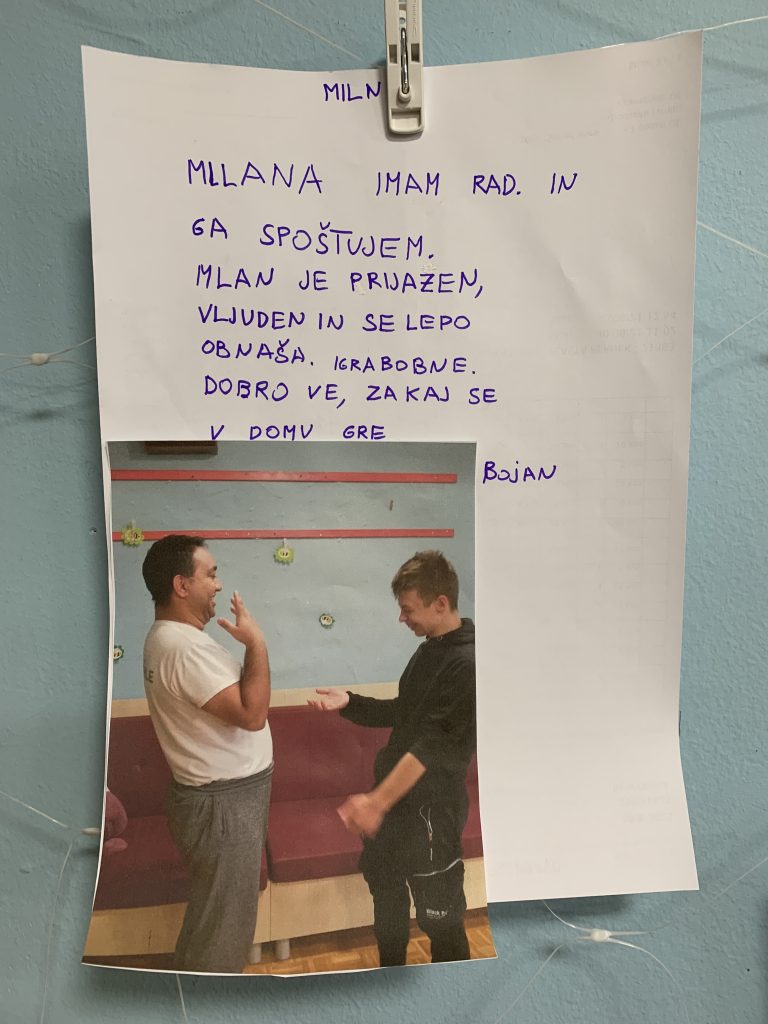 MILN
MILANA IMAM RAD. IN
GA SPOŠTUJEM.
MLAN JE PRIJAZEN,
VLJUDEN IN SE LEPO
OBNAŠA. IGRABOBNE.
DOBRO VE, ZAKAJ SE
V DOMU GRE
BOJAN